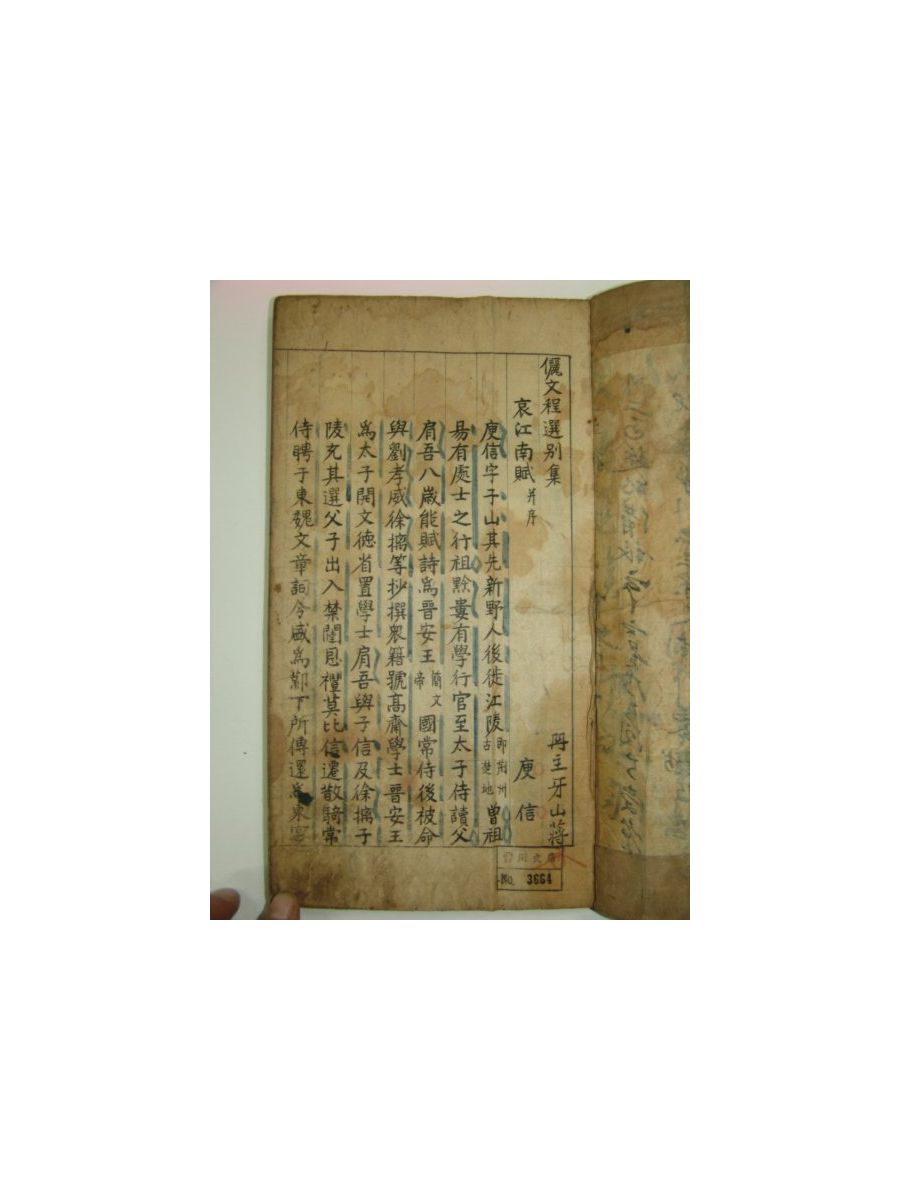 儷文程選別集
冊主牙山蔣
哀江南賦 并序
庾信
庾信字子山其先新野人後徙江陵 即荊州古楚地 曾祖
易有處士之行祖黔婁有學行官至太子侍讀父
肩吾八歲能賦詩爲晉安王 簡文帝 國常侍後被命
與劉孝威徐摛等抄撰衆籍號高齋學士晉安王
爲太子開文德省置學士肩吾與子信及徐摛子
陵充其選父子出入禁闥恩禮莫比信遷散騎常
侍聘于東魏文章詞令盛爲鄴下所傳還爲東宮
No. 3664